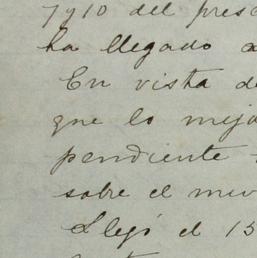 7 y 10 del pres
ha llegado a
En vista de
que lo mejo
pendiente
sobre el
Llegó el 15